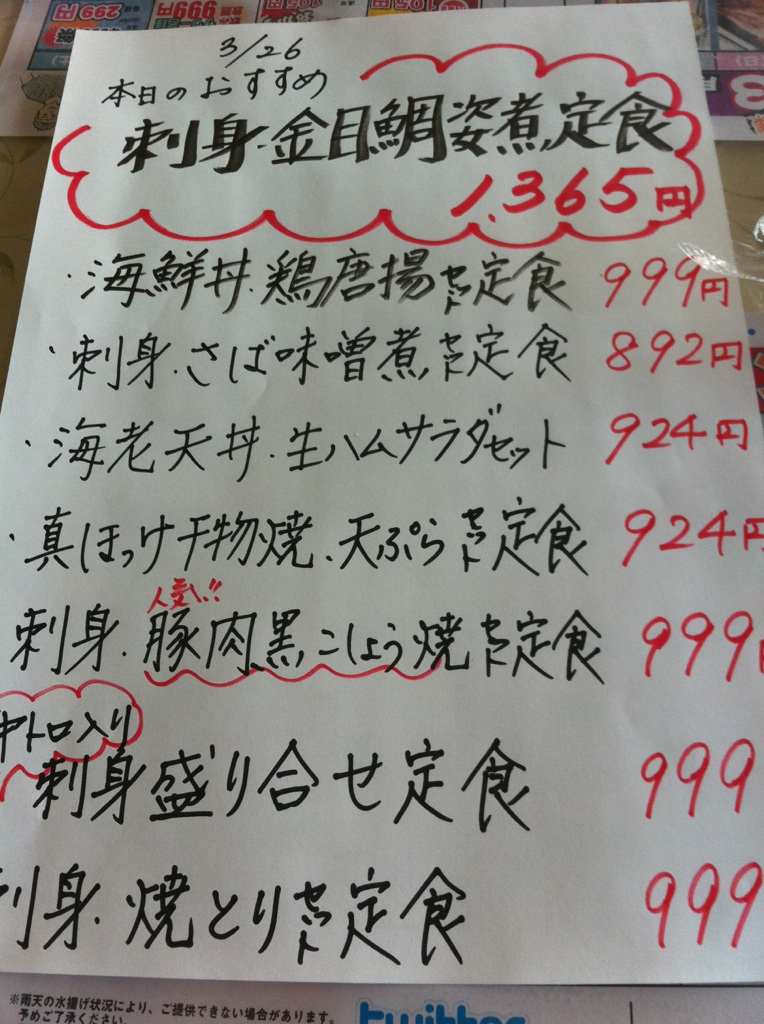 299円
999円
105円
105円
3/26
本日のおすすめ
刺身・金目鯛姿煮定食
1,365円
・海鮮丼・鶏唐揚セット定食 999円
・刺身・さば味噌煮セット定食 892円
・海老天丼・生ハムサラダセット 924円
・真ほっけ干物焼、天ぷらセット定食 924円
人気!!
刺身・豚肉黒こしょう焼セット定食 999円
中トロ入り
刺身盛り合せ定食 999
刺身・焼とりセット定食 999
※雨天の水揚げ状況により、ご提供できない場合があります。
予めご了承ください。
twitter